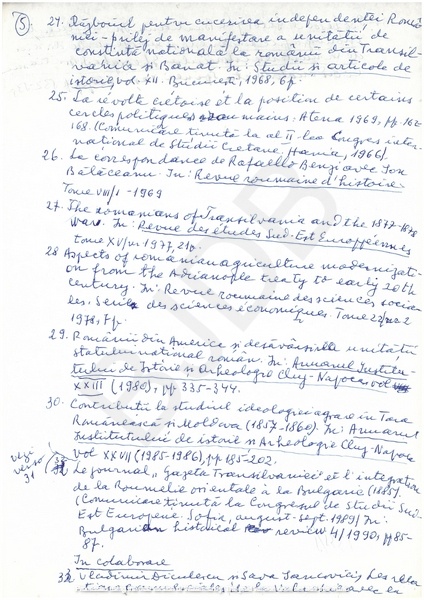 5
24. Războiul pentru cucerirea independentei Româ-
niei - prilej de manifestare a unitatii de
constiintă nationala la românii din Transil-
vania si Banat. In: Studii si articole de
istorie, vol. XII. Bucuresti, 1968, 6 p.
25. La révolte crétoise et la position de certains
cercles politiques roumains. Atena 1969, pp. 162-
168. (Comunicare tinută la al II-lea Congres inter-
national de Studii Cretane, Hania, 1966).
26. La correspondance de Rafaello Benzi avec Ion
Bălăceanu. In: Revue roumaine d'histoire
Tome VIII/1-1969
27. The romanians of Transylvania and the 1877-1878
War. In: Revue des études Sud-Est Européennes
tome XV/ 1977, 21p.
28 Aspects of romanian agriculture modernizati-
on from the Adrianople treaty to early 20th
century. In: Revue roumaine des sciences socia-
les. Série des sciences économiques. Tome 22/ 2
1978, 7 p.
29. Românii din America si desăvârsirea unitătii
statului national român. In: Anuarul Institu-
tului de Istorie si Arheologie Cluj-Napoca vol
XXIII (1980), pp 335-344.
30. Contributii la studiul ideologiei agrare in Tara
Românească si Moldova (1857-1860). In: Anuarul
Institutului de istorie si Arheologie Cluj-Napoca
vol XXVII (1985-1986), pp 185-202.
vezi
verso
31
32 Le journal "Gazeta Transilvaniei" et l'intégration
de la Roumelie orientale à la Bulgarie (1885).
(Comunicare tinută la Congresul de Studii Sud-
Est Europene. Sofia, august-sept. 1989) In:
Bulgarian historical review 4/1990, pp 85-
87.
In colaborare
33. Vladimir Diculescu si Sava Iancovici, Les rela-